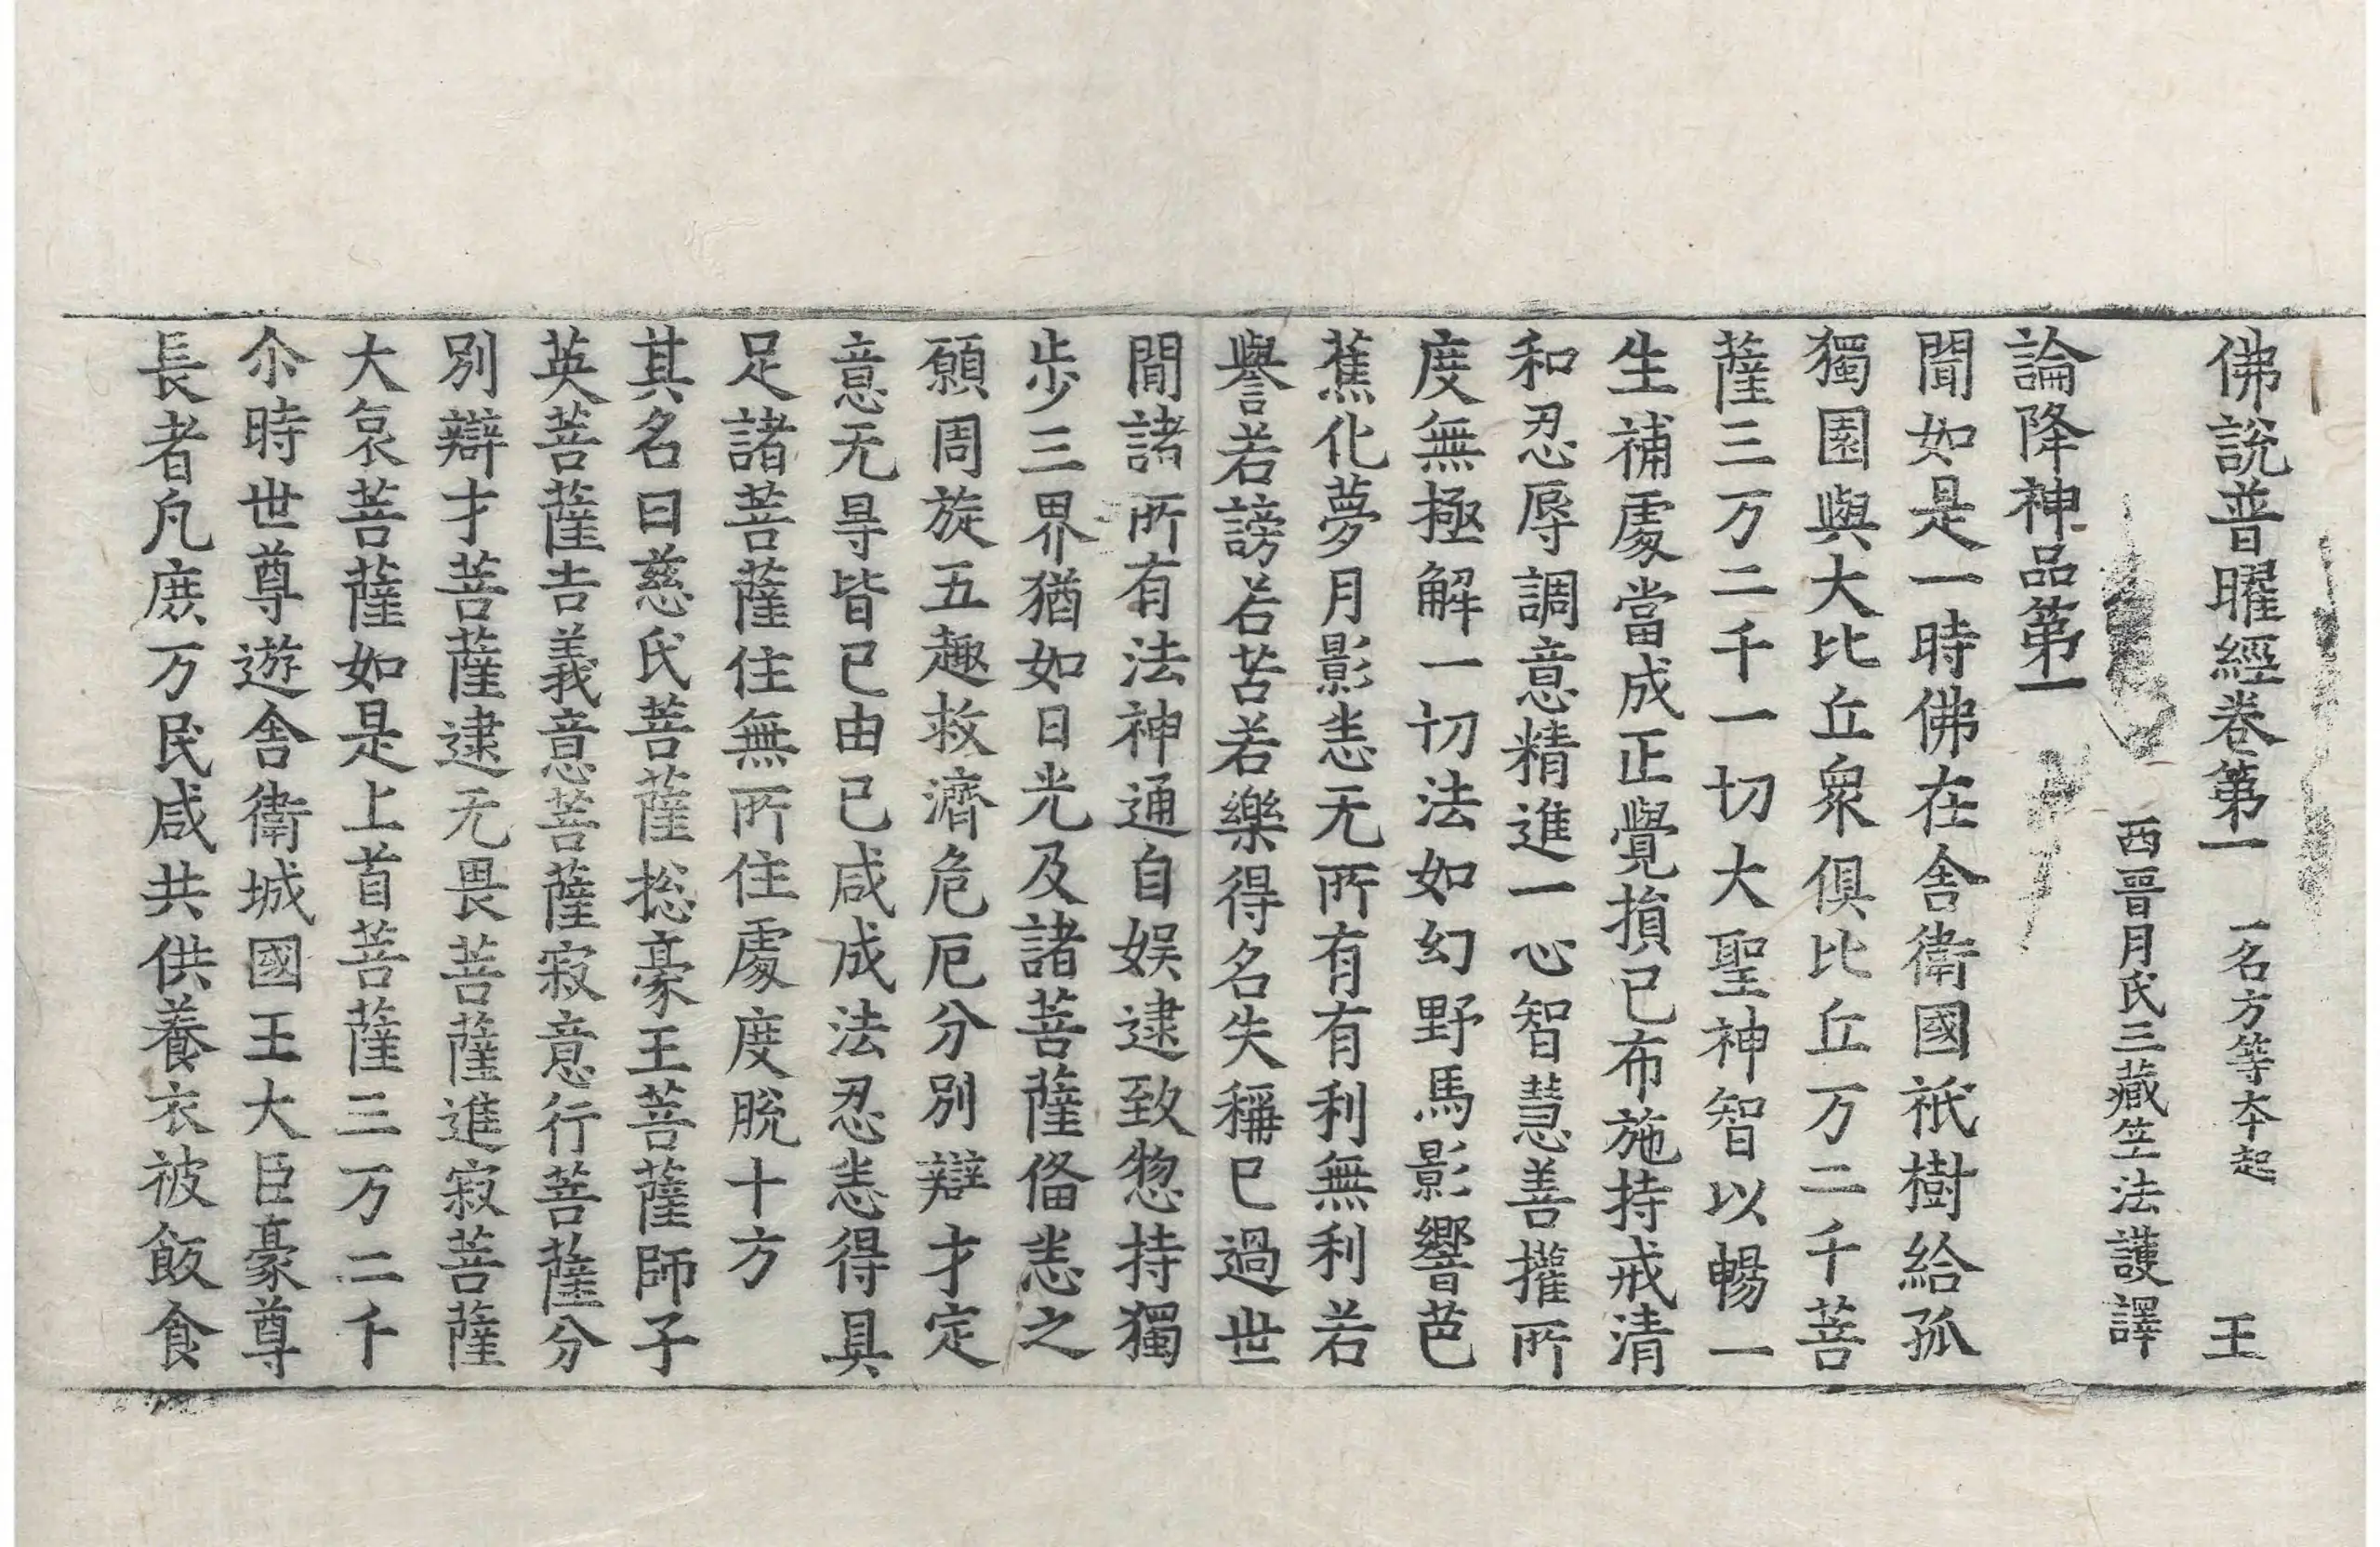 佛說普曜經卷第一 一名方等本起 王
西晉月氏三藏竺法護譯
論降神品第一
聞如是一時佛在舍衛國祇樹給孤
獨園與大比丘衆俱比丘万二千菩
薩三万二千一切大聖神智以暢一
生補處當成正覺損已布施持戒清
和忍辱調意精進一心智慧善權所
度無極解一切法如幻野馬影響芭
蕉化夢月影恚无所有有利無利若
譽若謗若苦若樂得名失稱已過世
間諸所有法神通自娛逮致惣持獨
步三界猶如日光及諸菩薩俻恚之
願周旋五趣救濟危厄分別辯才定
意无㝵皆已由已咸成法忍恚得具
足諸菩薩住無所住處度脫十方
其名曰慈氏菩薩捴豪王菩薩師子
英菩薩吉義意菩薩寂意行菩薩分
別辯才菩薩逮无畏菩薩進寂菩薩
大哀菩薩如是上首菩薩三万二千
尒時世尊遊舍衛城國王大臣豪尊
長者凡庶万民咸共供養衣被飯食